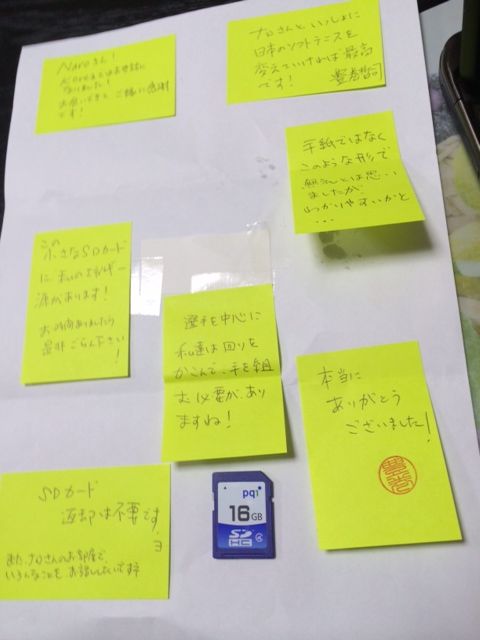 Naroさん!
なりました!
お会いできて、ご縁に感謝
です!
ナロさんといっしょに
日本のソフトテニスを
変えていければ最高
です!
手紙ではなく
このような形で
とは思い
ましたが
わかりやすいかと
...
この
小さなSDカード
に私のエネルギー
源があります!
お時間ありましたら
是非ごらん下さい
!
選手を中心に
私達は回りを
かこんで、手を組
む必要が、あり
ますね!
本当に
ありがとう
ございました!
SDカード
返却は不要です
!
また、ナロさんのお部屋で、
いろんなことを、お話ししたいです
pqi
16GB
SD
HC
4